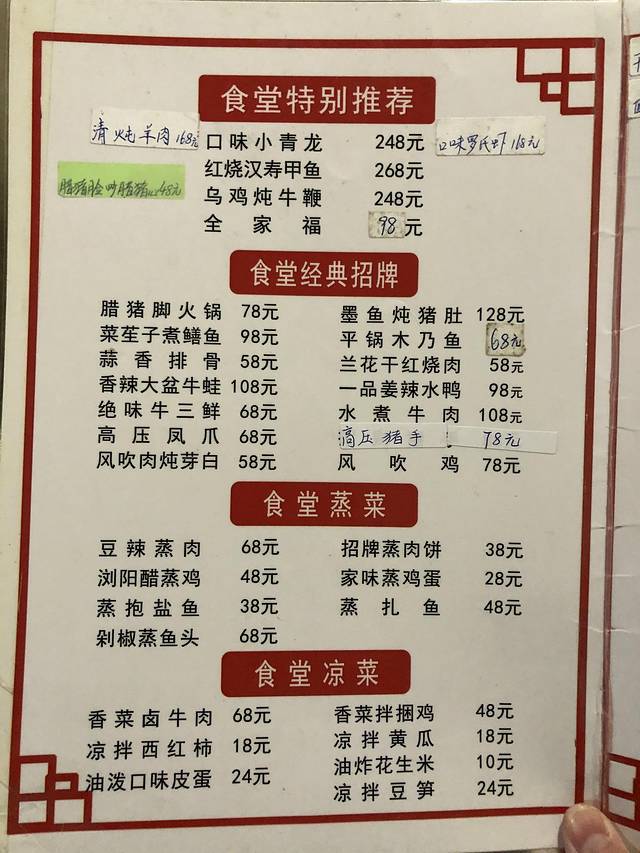 食堂特别推荐
清炖羊肉168元
口味小青龙 248元
口味罗氏虾168元
红烧汉寿甲鱼 268元
腊猪脸炒腊猪 48元
乌鸡炖牛鞭 248元
全家福 98元
食堂经典招牌
腊猪脚火锅 78元 墨鱼炖猪肚 128元
菜笙子煮鳝鱼 98元 平锅木乃鱼 68元
蒜香排骨 58元 兰花干红烧肉 58元
香辣大盆牛蛙 108元 一品姜辣水鸭 98元
绝味牛三鲜 68元 水煮牛肉 108元
高压凤爪 68元 高压猪手 78元
风吹肉炖芽白 58元 风吹鸡 78元
食堂蒸菜
豆辣蒸肉 68元 招牌蒸肉饼 38元
浏阳醋蒸鸡 48元 家味蒸鸡蛋 28元
蒸抱盐鱼 38元 蒸扎鱼 48元
剁椒蒸鱼头 68元
食堂凉菜
香菜卤牛肉 68元 香菜拌捆鸡 48元
凉拌西红柿 18元 凉拌黄瓜 18元
油泼口味皮蛋 24元 油炸花生米 10元
凉拌豆笋 24元